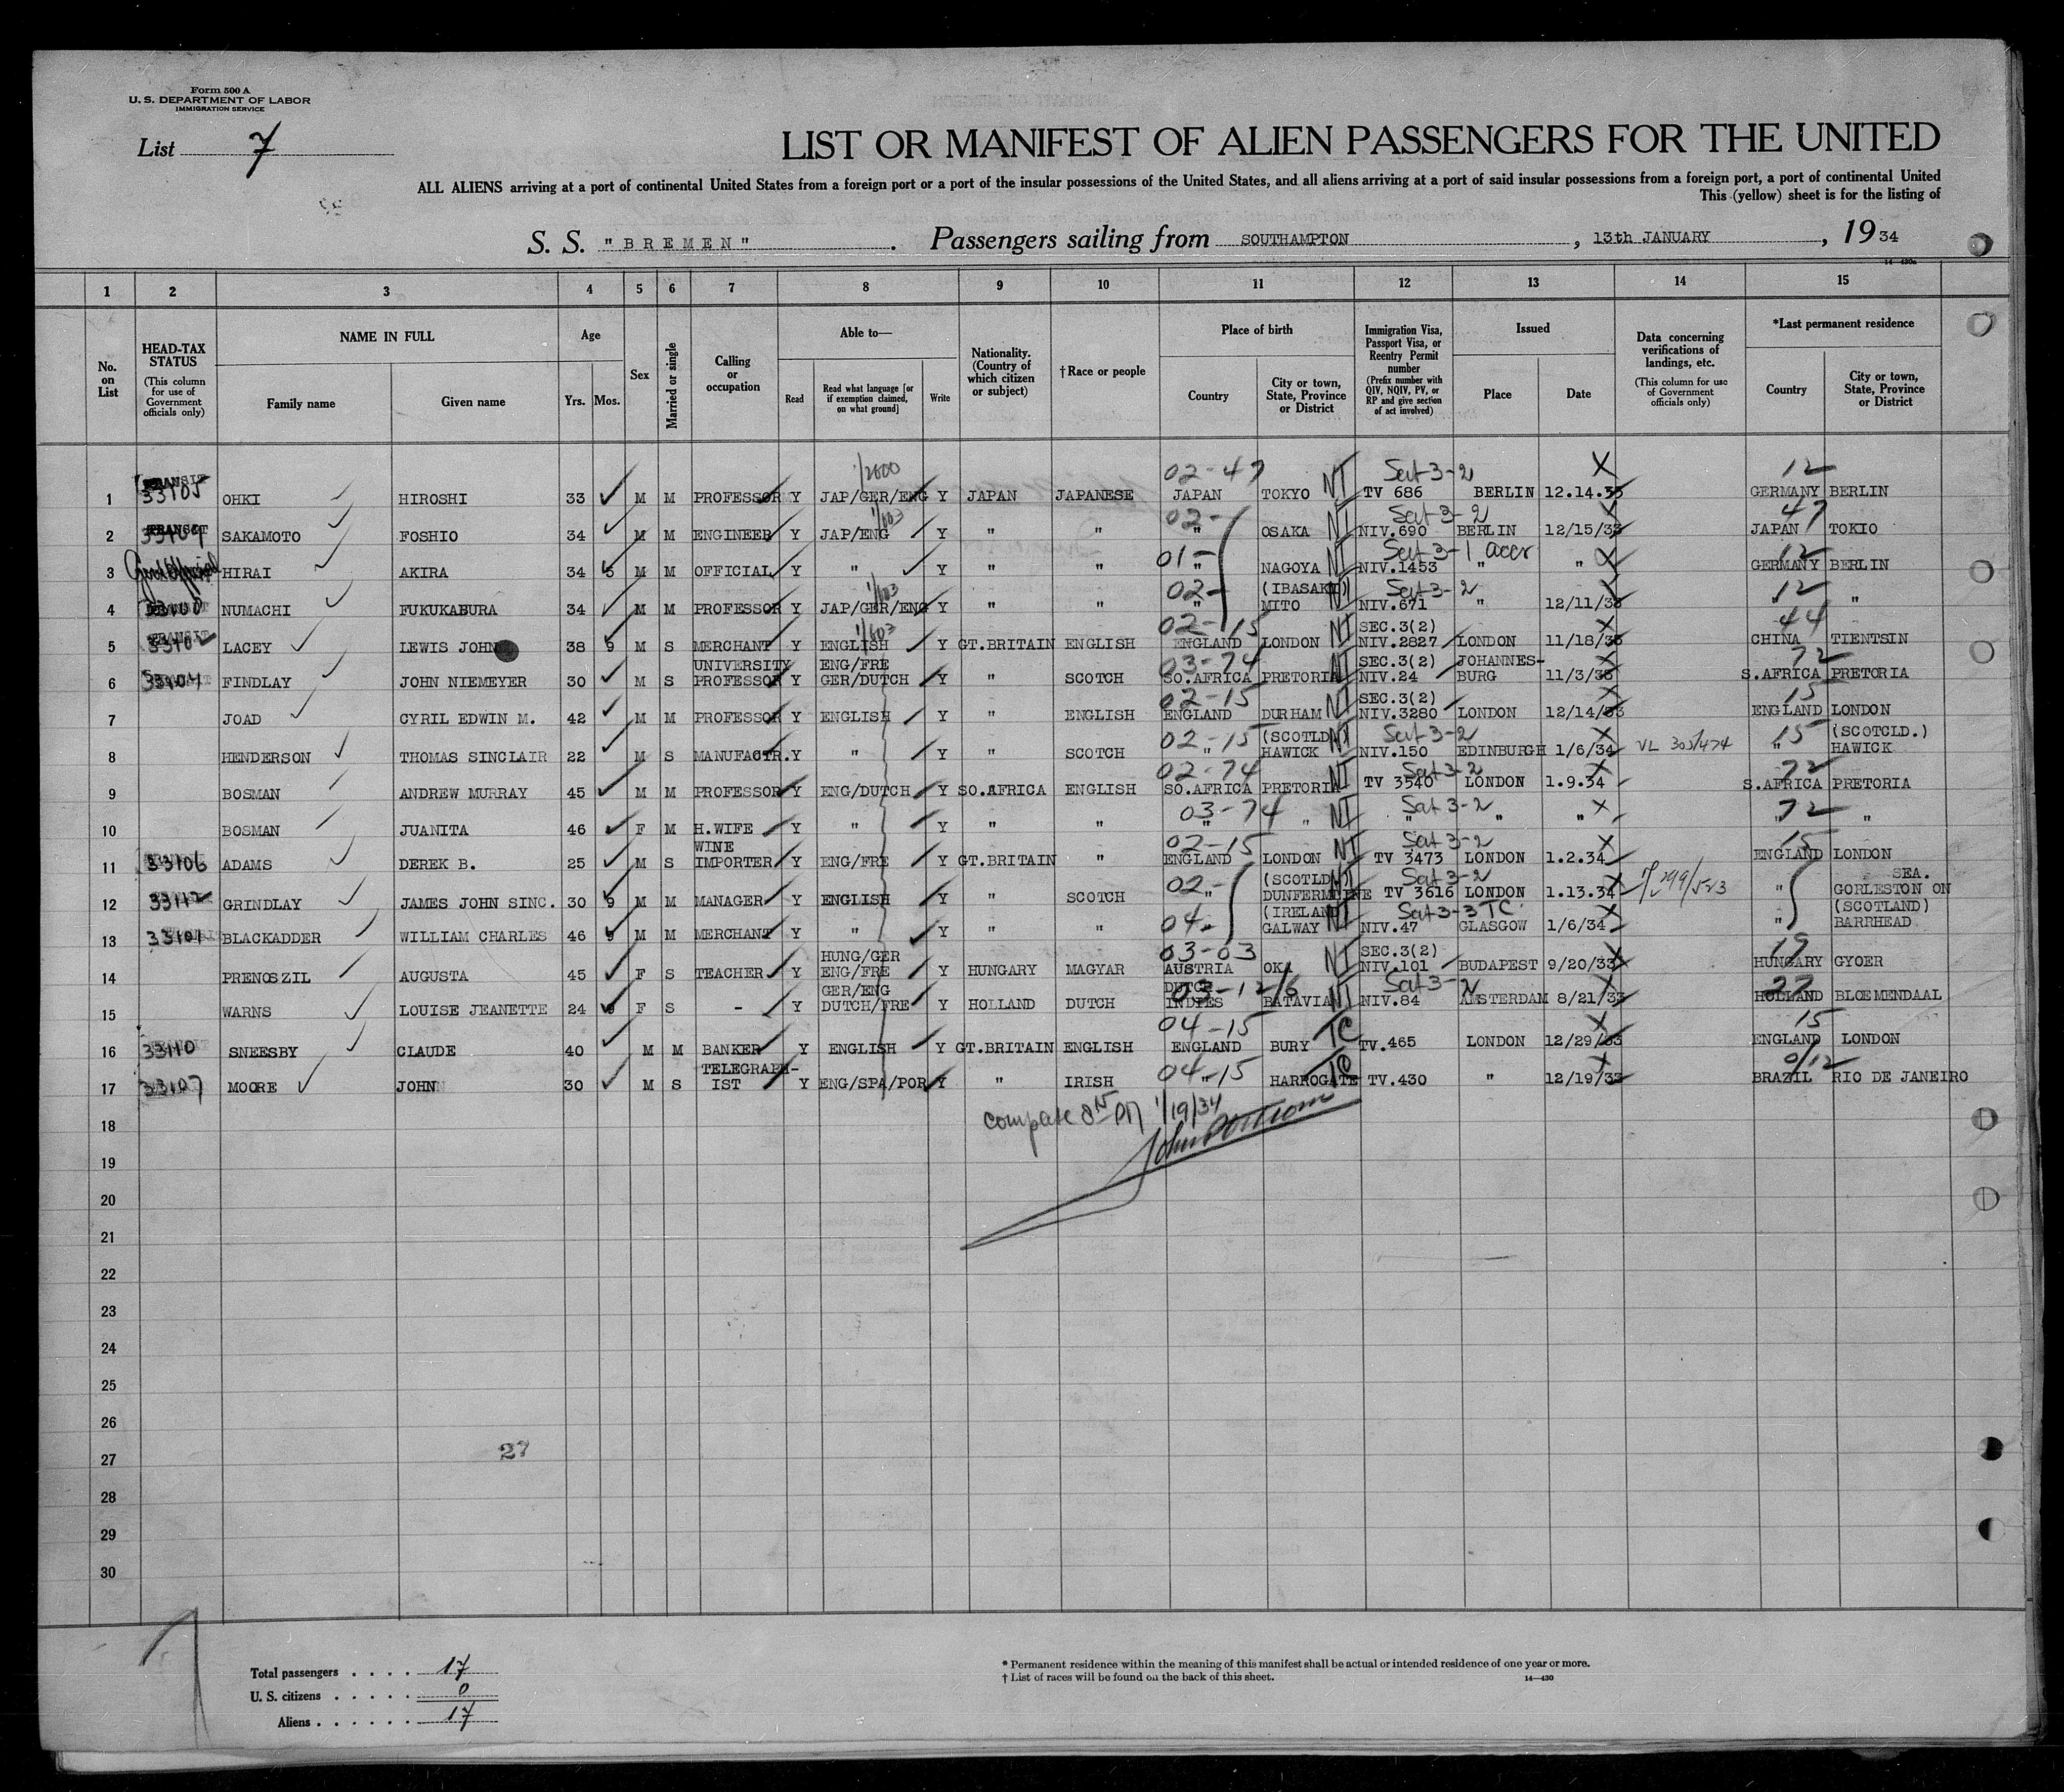 Form 500 A
U. S. DEPARTMENT OF LABOR
IMMIGRATION SERVICE
List 7
LIST OR MANIFEST OF ALIEN PASSENGERS FOR THE UNITED
ALL ALIENS arriving at a port of continental United States from a foreign port or a port of the insular possessions of the United States, and all aliens arriving at a port of said insular possessions from a foreign port, a port of continental United
This (yellow) sheet is for the listing of
S. S. "BREMEN". Passengers sailing from SOUTHAMPTON, 13th JANUARY, 1934
1 2 3 4 5 6 7 8 9 10 11 12 13 14 15
No. on List
HEAD-TAX STATUS (This column for use of Government officials only)
NAME IN FULL
Family name Given name
Age Yrs. Mos.
Sex
Married or single
Calling or occupation
Able to— Read Read what language [or if exemption claimed, on what ground] Write
Nationality. (Country of which citizen or subject)
†Race or people
Place of birth Country City or town, State, Province or District
Immigration Visa, Passport Visa, or Reentry Permit number (Prefix number with QIV, NQIV, PV, or RP and give section of act involved)
Issued Place Date
Data concerning verifications of landings, etc. (This column for use of Government officials only)
*Last permanent residence Country City or town, State, Province or District
1/2600 02-47 NI Sect 3-2 X 12
1 33105 OHKI HIROSHI 33 M M PROFESSOR Y JAP/GER/ENG Y JAPAN JAPANESE JAPAN TOKYO TV 686 BERLIN 12.14.33 GERMANY BERLIN
1/103 02- NI Sect 3-2 X 47
2 33109 SAKAMOTO FOSHIO 34 M M ENGINEER Y JAP/ENG Y " " " OSAKA NIV.690 BERLIN 12/15/33 JAPAN TOKIO
01- NI Sect 3-1 accr X 12
3 Govt Official HIRAI AKIRA 34 5 M M OFFICIAL Y " Y " " " NAGOYA NIV.1453 " " GERMANY BERLIN
1/103 02- (IBASAKI) Sect 3-2 X 12
4 NUMACHI FUKUKABURA 34 M M PROFESSOR Y JAP/GER/ENG Y " " " MITO NIV.671 " 12/11/33 " "
1/603 02-15 NI SEC.3(2) X 44
5 33102 LACEY LEWIS JOHN 38 9 M S MERCHANT Y ENGLISH Y GT.BRITAIN ENGLISH ENGLAND LONDON NIV.2827 LONDON 11/18/33 CHINA TIENTSIN
UNIVERSITY ENG/FRE 03-74 NI SEC.3(2) JOHANNES- X 72
6 33104 FINDLAY JOHN NIEMEYER 30 M S PROFESSOR Y GER/DUTCH Y " SCOTCH SO.AFRICA PRETORIA NIV.24 BURG 11/3/33 S.AFRICA PRETORIA
02-15 NI SEC.3(2) X 15
7 JOAD CYRIL EDWIN M. 42 M M PROFESSOR Y ENGLISH Y " ENGLISH ENGLAND DURHAM NIV.3280 LONDON 12/14/33 ENGLAND LONDON
02-15 (SCOTLD) NI Sect 3-2 X 15 (SCOTCLD.)
8 HENDERSON THOMAS SINCLAIR 22 M S MANUFACTR. Y " Y " SCOTCH " HAWICK NIV.150 EDINBURGH 1/6/34 VL 303/474 " HAWICK
02-74 NI Sect 3-2 X 72
9 BOSMAN ANDREW MURRAY 45 M M PROFESSOR Y ENG/DUTCH Y SO.AFRICA ENGLISH SO.AFRICA PRETORIA TV 3540 LONDON 1.9.34 S.AFRICA PRETORIA
03-74 NI Sect 3-2 X 72
10 BOSMAN JUANITA 46 F M H.WIFE Y " Y " " " " " " " " "
WINE 02-15 NI Sect 3-2 X 15
11 33106 ADAMS DEREK B. 25 M S IMPORTER Y ENG/FRE Y GT.BRITAIN " ENGLAND LONDON TV 3473 LONDON 1.2.34 ENGLAND LONDON
02- (SCOTLD) NI Sect 3-2 X SEA.
12 33112 GRINDLAY JAMES JOHN SINC. 30 9 M M MANAGER Y ENGLISH Y " SCOTCH " DUNFERMLINE TV 3616 LONDON 1.13.34 " GORLESTON ON
04- (IRELAND) NI Sect 3-3 TC X (SCOTLAND)
13 33101 BLACKADDER WILLIAM CHARLES 46 9 M M MERCHANT Y " Y " " GALWAY NIV.47 GLASGOW 1/6/34 " BARRHEAD
HUNG/GER 03-03 NI SEC.3(2) X 19
14 PRENOSZIL AUGUSTA 45 F S TEACHER Y ENG/FRE Y HUNGARY MAGYAR AUSTRIA OKA NIV.101 BUDAPEST 9/20/33 HUNGARY GYOER
GER/ENG DUTCH 03-12/6 NI Sect 3-2 27
15 WARNS LOUISE JEANETTE 24 9 F S - Y DUTCH/FRE Y HOLLAND DUTCH INDIES BATAVIA NIV.84 AMSTERDAM 8/21/33 HOLLAND BLOEMENDAAL
04-15 TC X 15
16 33110 SNEESBY CLAUDE 40 M M BANKER Y ENGLISH Y GT.BRITAIN ENGLISH ENGLAND BURY TV.465 LONDON 12/29/33 ENGLAND LONDON
TELEGRAPH- 04-15 TC X 9/12
17 33107 MOORE JOHN 30 M S IST Y ENG/SPA/POR Y " IRISH " HARROGATE TV.430 " 12/19/33 BRAZIL RIO DE JANEIRO
1/19/34
18
19
20
21
22
23
24
25
26
27
27
28
29
30
Total passengers . . . . 17
U. S. citizens . . . . . 0
Aliens . . . . . . 17
* Permanent residence within the meaning of this manifest shall be actual or intended residence of one year or more.
† List of races will be found on the back of this sheet.
14—430